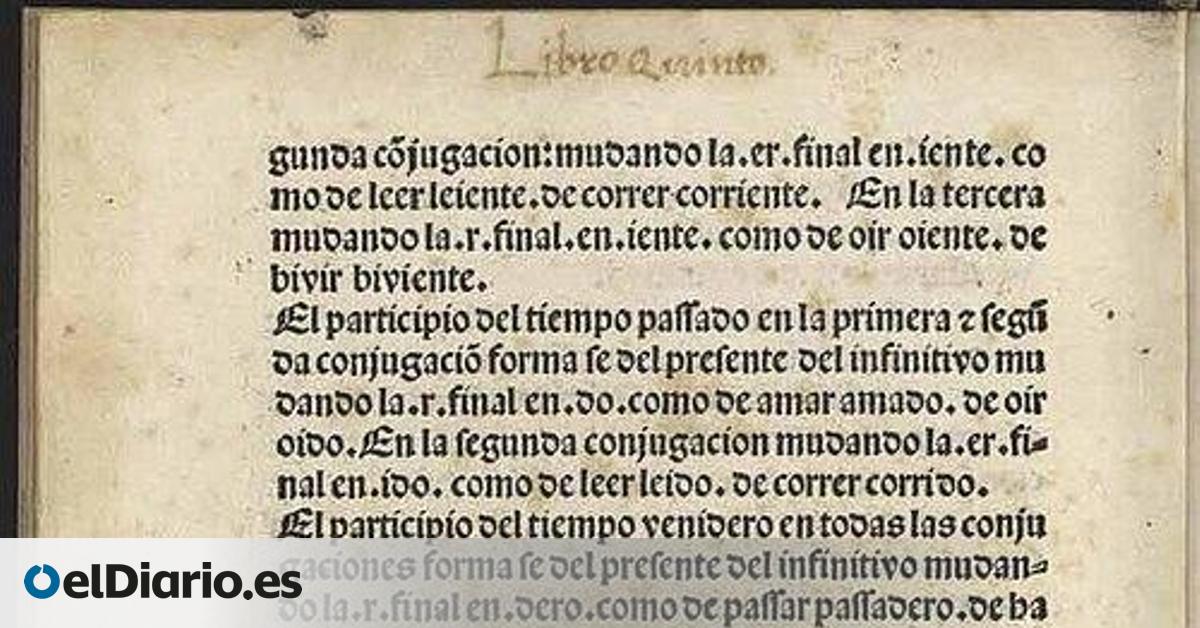 Libro Quinto.
gunda cõjugacion: mudando la .er. final en .iente. co
mo de leer leiente. de correr corriente. En la tercera
mudando la .r. final. en .iente. como de oir oiente. de
bivir biviente.
El participio del tiempo paſſado en la primera ⁊ ſegũ
da conjugaciõ forma ſe del preſente del infinitivo mu
dando la .r. final en .do. como de amar amado. de oir
oido. En la ſegunda conjugacion mudando la .er. fi⸗
nal en .ido. como de leer leido. de correr corrido.
El participio del tiempo venidero en todas las conju
gaciones forma ſe del preſente del infinitivo mudan⸗
do la .r. final en .dero. como de paſſar paſſadero. de ba
elDiario.es